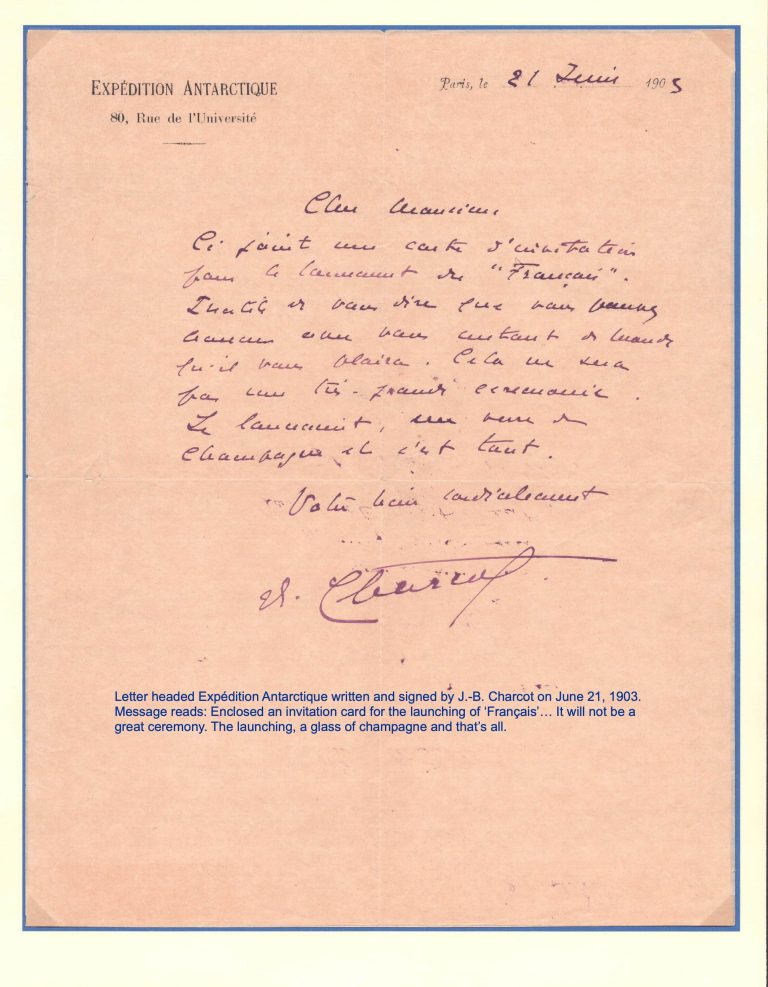 EXPÉDITION ANTARCTIQUE
80, Rue de l'Université
Paris, le 21 Juin 1903
Cher Monsieur
Ci joint une carte d'invitation
pour le lancement du "Français".
Inutile de vous dire que vous pouvez
amener avec vous autant de monde
qu'il vous plaira. Cela ne sera
pas une très grande ceremonie.
Le lancement, un verre de
champagne et c'est tout.
Votre bien cordialement
Charcot
Letter headed Expédition Antarctique written and signed by J.-B. Charcot on June 21, 1903.
Message reads: Enclosed an invitation card for the launching of 'Français'… It will not be a
great ceremony. The launching, a glass of champagne and that's all.